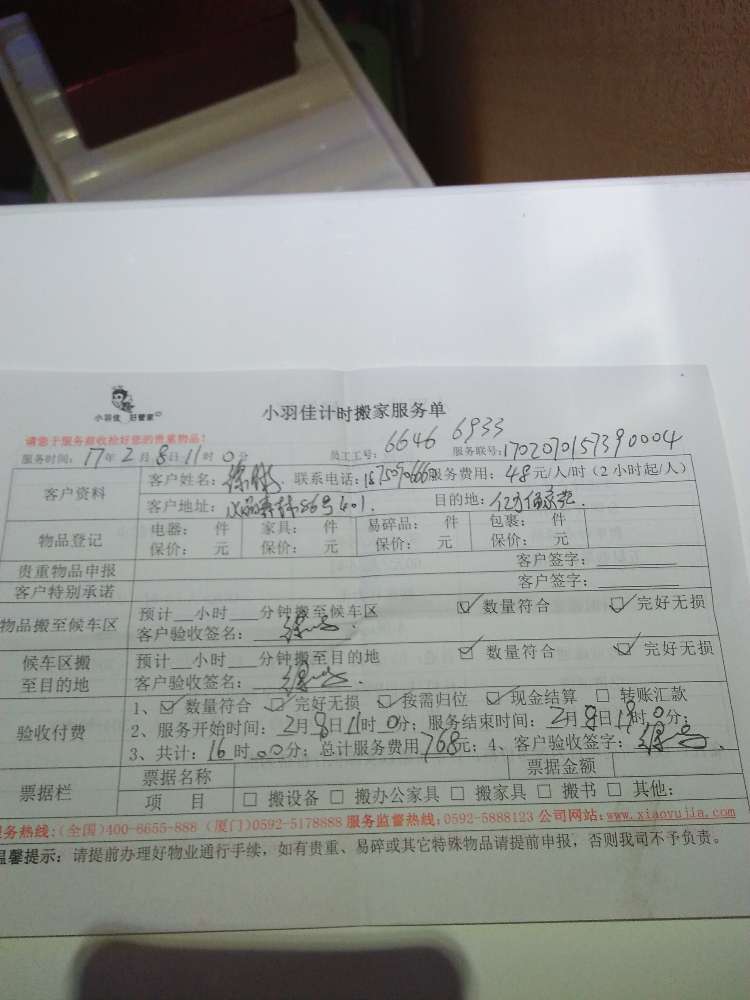 小羽佳 好管家
小羽佳计时搬家服务单
请您于服务前收捡好您的贵重物品!
服务时间: 17年2月8日11时0分 员工工号: 6646 6933 服务联号: 1702070157390004
客户资料 客户姓名: 联系电话: 服务费用: 48元/人/时(2小时起/人)
客户地址: 86号401. 目的地:
物品登记 电器: 件 家具: 件 易碎品: 件 包裹: 件
保价: 元 保价: 元 保价: 元 保价: 元
贵重物品申报 客户签字:
客户特别承诺 客户签字:
物品搬至候车区 预计__小时__分钟搬至候车区 ☑ 数量符合 ☑ 完好无损
客户验收签名:
候车区搬至目的地 预计__小时__分钟搬至目的地 ☑ 数量符合 ☑ 完好无损
客户验收签名:
验收付费 1、☑ 数量符合 ☑ 完好无损 ☑ 按需归位 ☑ 现金结算 □ 转账汇款
2、服务开始时间: 2月8日11时0分; 服务结束时间: 2月8日 时0分;
3、共计: 16时00分; 总计服务费用768元; 4、客户验收签字:
票据栏 票据名称 票据金额
项 目 □ 搬设备 □ 搬办公家具 □ 搬家具 □ 搬书 □ 其他:
服务热线:(全国)400-6655-888 (厦门)0592-5178888 服务监督热线:0592-5888123 公司网站:www.xiaoyujia.com
温馨提示: 请提前办理好物业通行手续, 如有贵重、易碎或其它特殊物品请提前申报, 否则我司不予负责。